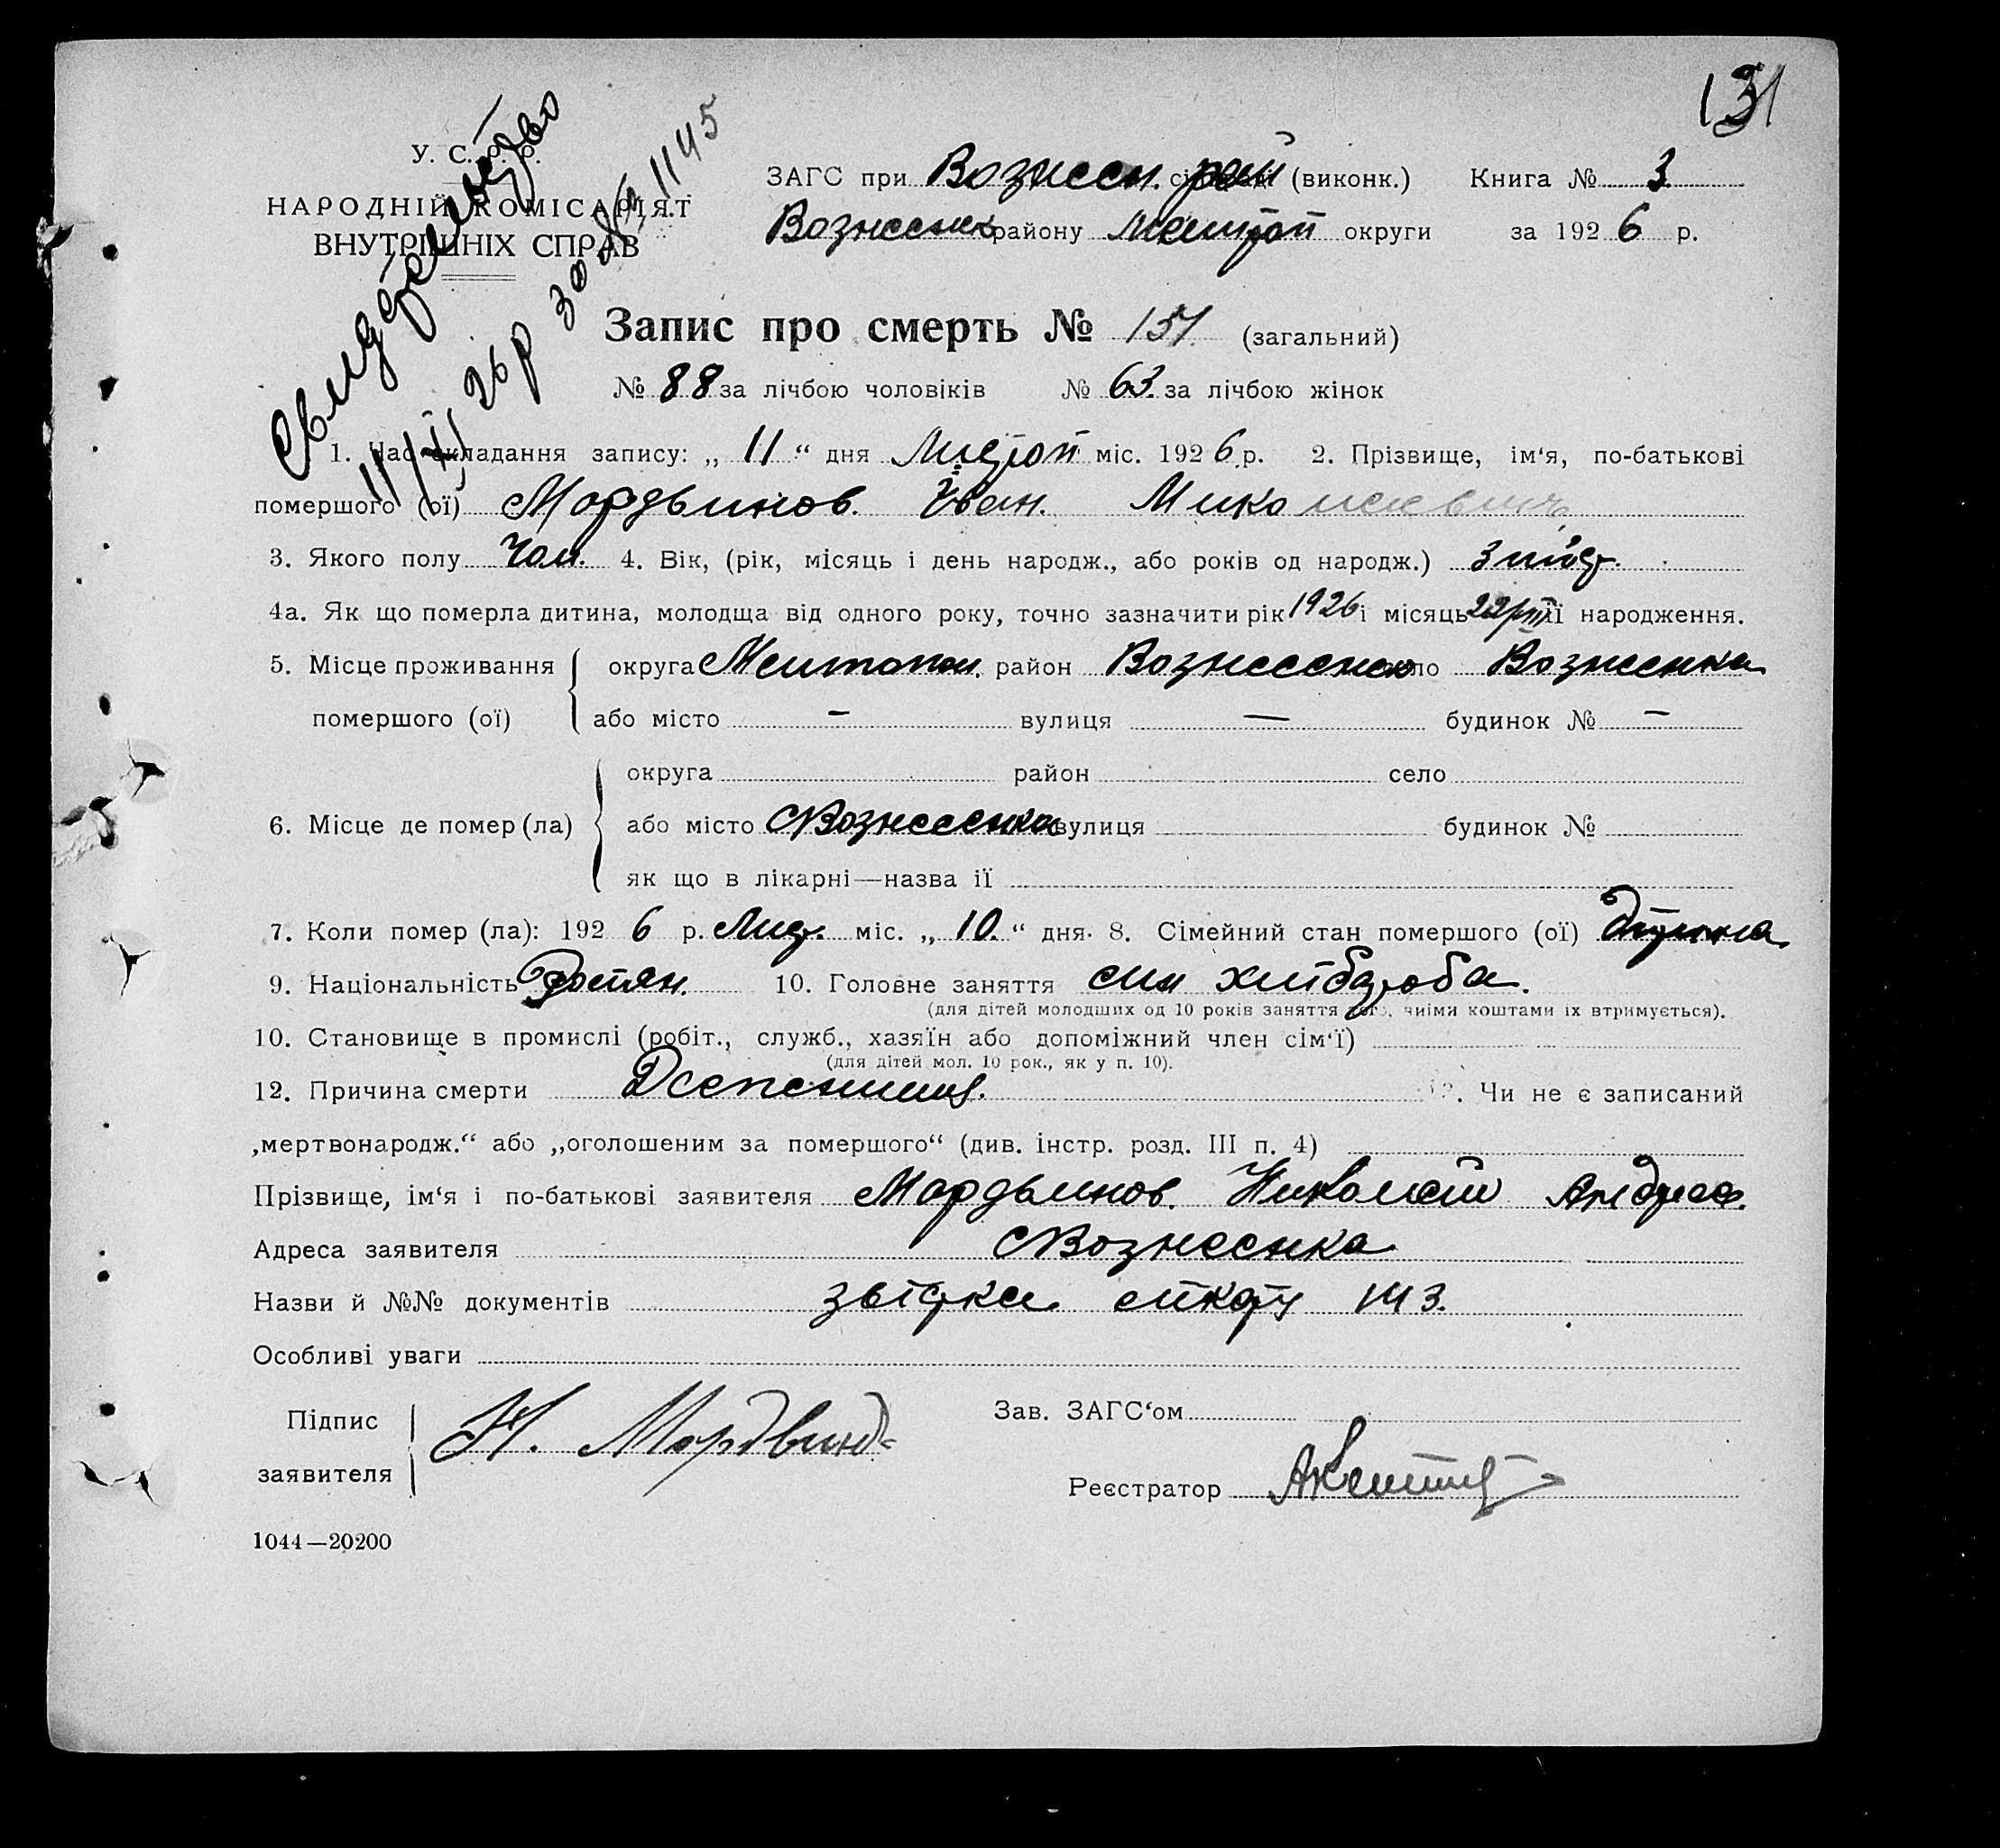 131
У. С. Р. Р.
НАРОДНІЙ КОМІСАРІЯТ
ВНУТРІШНІХ СПРАВ
1145
ЗАГС при Вознесен. рай (виконк.) Книга № 3
Вознесенск району округи за 1926 р.
Запис про смерть № 151 (загальний)
№ 88 за лічбою чоловіків № 63 за лічбою жінок
1. Час складання запису: „ 11 “ дня міс. 1926 р. 2. Прізвище, ім‘я, по-батькові
помершого (ої) Мордвинов Іван Миколаевич
3. Якого полу Чол. 4. Вік, (рік, місяць і день народж., або років од народж.)
4а. Як що померла дитина, молодща від одного року, точно зазначити рік 1926 і місяць її народження.
5. Місце проживання округа район Вознесенск село Вознесенка
помершого (ої) або місто — вулиця — будинок № —
округа район село
6. Місце де помер (ла) або місто с Вознесенка вулиця будинок №
як що в лікарні—назва її
7. Коли помер (ла): 1926 р. Лип. міс. „ 10 “ дня. 8. Сімейний стан помершого (ої) дитина
9. Національність 10. Головне заняття син хлібороба.
(для дітей молодших од 10 років заняття того, чиїми коштами їх втримується).
10. Становище в промислі (робіт., служб., хазяїн або допоміжний член сім‘ї)
(для дітей мол. 10 рок., як у п. 10).
12. Причина смерти 13. Чи не є записаний
„мертвонародж.“ або „оголошеним за помершого“ (див. інстр. розд. III п. 4)
Прізвище, ім‘я і по-батькові заявителя Мордвинов Николай Андреев.
Адреса заявителя с Вознесенка
Назви й №№ документів
Особливі уваги
Підпис
заявителя Н. Мордвинов
Зав. ЗАГС‘ом
Реєстратор
1044—20200